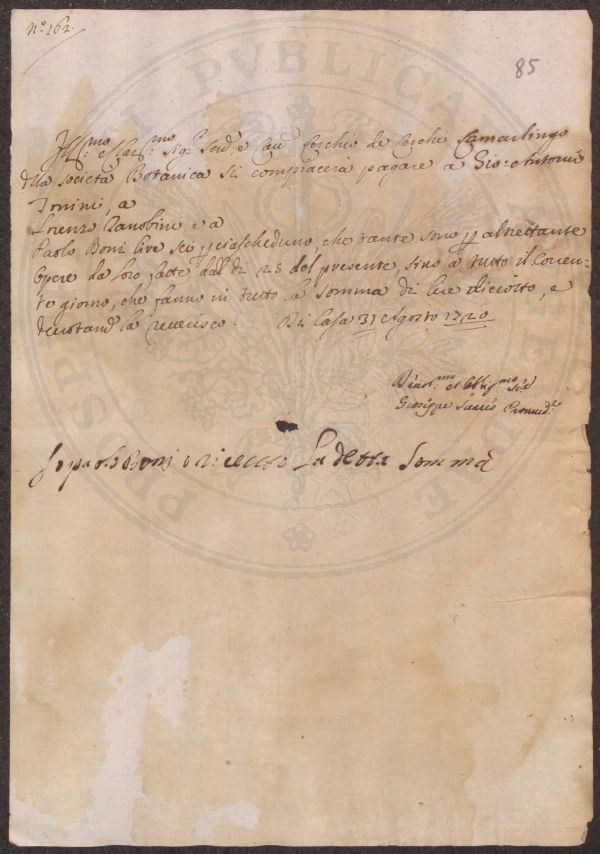 N.º 162.
85
Ill:mo e Clar:mo Sig:r Sen:re e Cav: Cerchio de Cerchi Camarlingo
della Società Botanica Si compiacerà pagare a Gio: Antonio
Tonini, a
Lorenzo Zanobini, e a
Paolo Boni lire sei p ciascheduno, che tante sono p altrettante
Opere da loro fatte dal dì 25 del presente, sino a tutto il Corren-
te giorno, che fanno in tutto la somma di lire diciotto, e
devotam: la riverisco. Di Casa 31 Agosto 1720
Devot:mo et Obblig:mo
Giuseppe
Io paolo Boni o ricevuto La detta Somma